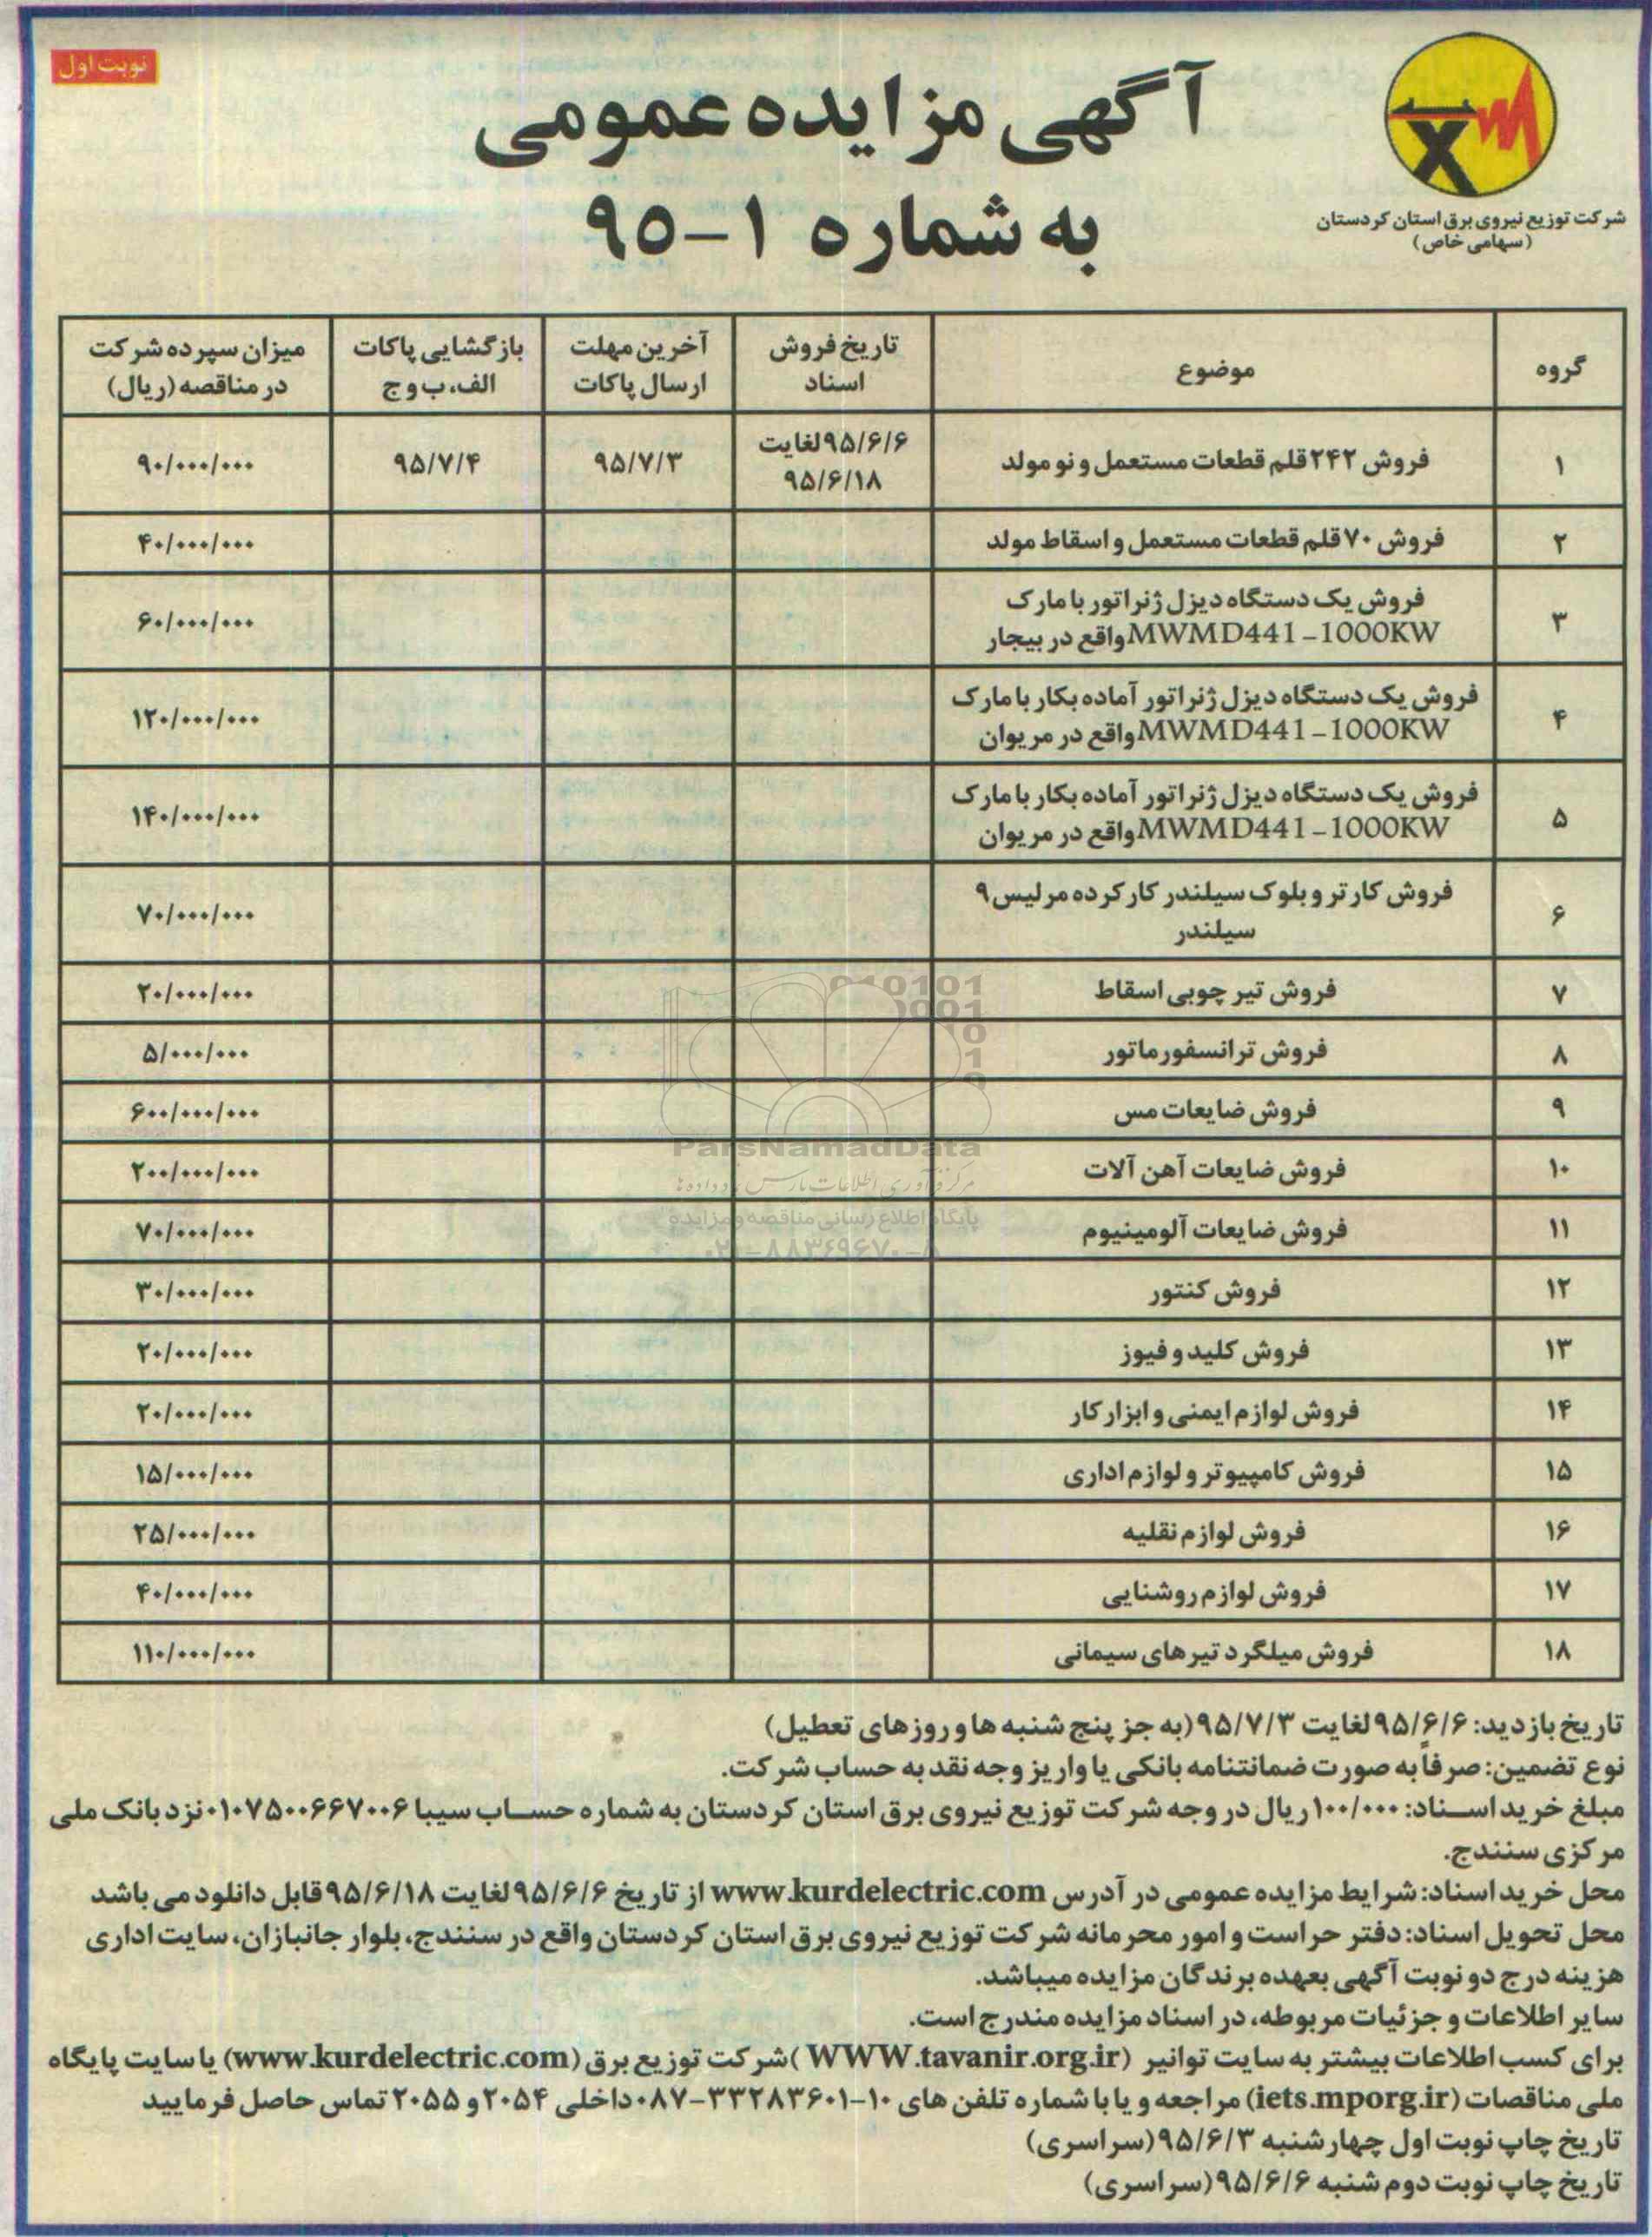 نوبت اول
آگهی مزایده عمومی
به شماره ۱-۹۵
شرکت توزیع نیروی برق استان کردستان
(سهامی خاص)
گروه | موضوع | تاریخ فروش اسناد | آخرین مهلت ارسال پاکات | بازگشایی پاکات الف، ب و ج | میزان سپرده شرکت در مناقصه (ریال)
۱ | فروش ۲۴۲ قلم قطعات مستعمل و نو مولد | ۹۵/۶/۶ لغایت ۹۵/۶/۱۸ | ۹۵/۷/۳ | ۹۵/۷/۴ | ۹۰/۰۰۰/۰۰۰
۲ | فروش ۷۰ قلم قطعات مستعمل و اسقاط مولد | ۴۰/۰۰۰/۰۰۰
۳ | فروش یک دستگاه دیزل ژنراتور با مارک MWMD441-1000KW واقع در بیجار | ۶۰/۰۰۰/۰۰۰
۴ | فروش یک دستگاه دیزل ژنراتور آماده بکار با مارک MWMD441-1000KW واقع در مریوان | ۱۲۰/۰۰۰/۰۰۰
۵ | فروش یک دستگاه دیزل ژنراتور آماده بکار با مارک MWMD441-1000KW واقع در مریوان | ۱۴۰/۰۰۰/۰۰۰
۶ | فروش کارتر و بلوک سیلندر کارکرده مرلیس ۹ سیلندر | ۷۰/۰۰۰/۰۰۰
۷ | فروش تیر چوبی اسقاط | ۲۰/۰۰۰/۰۰۰
۸ | فروش ترانسفورماتور | ۵/۰۰۰/۰۰۰
۹ | فروش ضایعات مس | ۶۰۰/۰۰۰/۰۰۰
۱۰ | فروش ضایعات آهن آلات | ۲۰۰/۰۰۰/۰۰۰
۱۱ | فروش ضایعات آلومینیوم | ۷۰/۰۰۰/۰۰۰
۱۲ | فروش کنتور | ۳۰/۰۰۰/۰۰۰
۱۳ | فروش کلید و فیوز | ۲۰/۰۰۰/۰۰۰
۱۴ | فروش لوازم ایمنی و ابزار کار | ۲۰/۰۰۰/۰۰۰
۱۵ | فروش کامپیوتر و لوازم اداری | ۱۵/۰۰۰/۰۰۰
۱۶ | فروش لوازم نقلیه | ۲۵/۰۰۰/۰۰۰
۱۷ | فروش لوازم روشنایی | ۴۰/۰۰۰/۰۰۰
۱۸ | فروش میلگرد تیرهای سیمانی | ۱۱۰/۰۰۰/۰۰۰
ParsNamadData
پایگاه اطلاع رسانی مناقصه و مزایده
۰۲۱-۸۸۳۴۹۶۷۰-۸
تاریخ بازدید: ۹۵/۶/۶ لغایت ۹۵/۷/۳ (به جز پنج شنبه ها و روزهای تعطیل)
نوع تضمین: صرفاً به صورت ضمانتنامه بانکی یا واریز وجه نقد به حساب شرکت.
مبلغ خرید اسناد: ۱۰۰/۰۰۰ ریال در وجه شرکت توزیع نیروی برق استان کردستان به شماره حساب سیبا ۰۱۰۷۵۰۰۶۶۷۰۰۶ نزد بانک ملی
مرکزی سنندج.
محل خرید اسناد: شرایط مزایده عمومی در آدرس www.kurdelectric.com از تاریخ ۹۵/۶/۶ لغایت ۹۵/۶/۱۸ قابل دانلود می باشد
محل تحویل اسناد: دفتر حراست و امور محرمانه شرکت توزیع نیروی برق استان کردستان واقع در سنندج، بلوار جانبازان، سایت اداری
هزینه درج دو نوبت آگهی بعهده برندگان مزایده میباشد.
سایر اطلاعات و جزئیات مربوطه، در اسناد مزایده مندرج است.
برای کسب اطلاعات بیشتر به سایت توانیر (WWW.tavanir.org.ir) شرکت توزیع برق (www.kurdelectric.com) یا سایت پایگاه
ملی مناقصات (iets.mporg.ir) مراجعه و یا با شماره تلفن های ۱۰-۰۸۷-۳۳۲۸۳۶۰۱ داخلی ۲۰۵۴ و ۲۰۵۵ تماس حاصل فرمایید
تاریخ چاپ نوبت اول چهارشنبه ۹۵/۶/۳ (سراسری)
تاریخ چاپ نوبت دوم شنبه ۹۵/۶/۶ (سراسری)